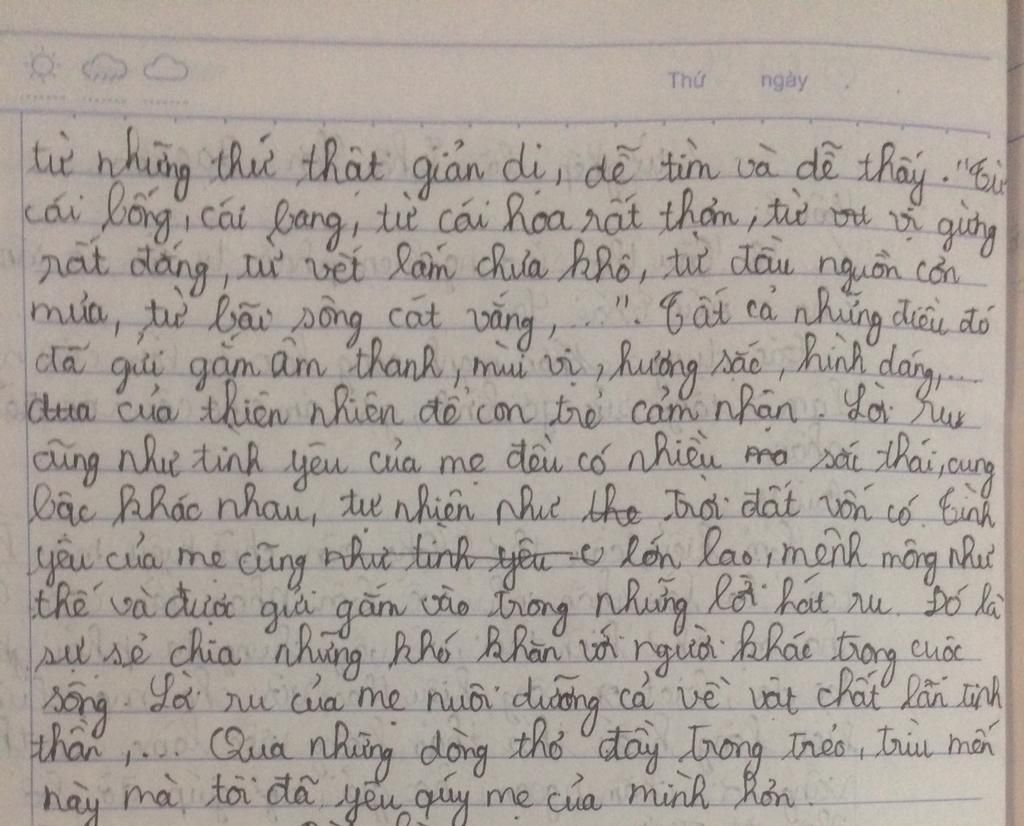 Thứ ngày
từ những thứ thật giản dị, dễ tìm và dễ thấy. "Từ
cái bống, cái bang, từ cái hoa rất thơm, từ vị gừng
rất đắng, từ vết lấm chưa khô, từ đầu nguồn cơn
mưa, từ bãi sông cát vắng,...". Tất cả những điều đó
đã gửi gắm âm thanh, mùi vị, hương sắc, hình dáng,...
của thiên nhiên để con trẻ cảm nhận. Lời ru
cũng như tình yêu của mẹ đều có nhiều sắc thái, cung
bậc khác nhau, tự nhiên như trời đất vốn có. Tình
yêu của mẹ cũng lớn lao, mênh mông như
thế và được gửi gắm vào trong những lời hát ru. Đó là
sự sẻ chia những khó khăn với người khác trong cuộc
sống. Lời ru của mẹ nuôi dưỡng cả về vật chất lẫn tinh
thần,... Qua những dòng thơ đầy trong trẻo, trìu mến
này mà tôi đã yêu quý mẹ của mình hơn.